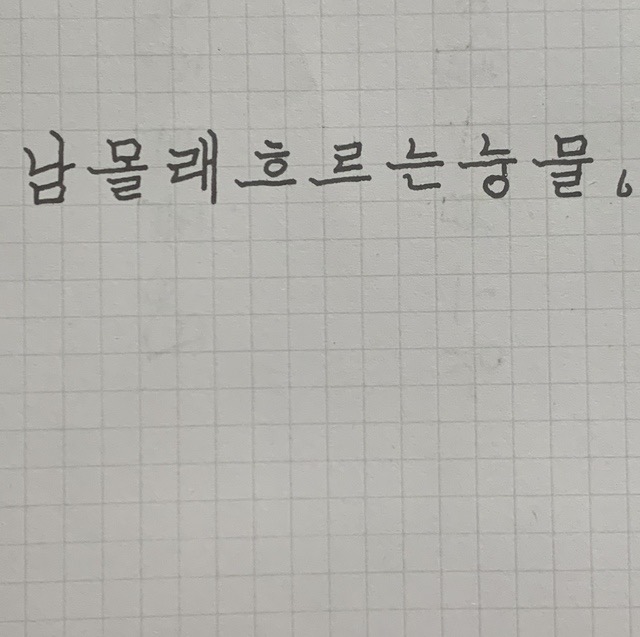 남몰래흐르는눙물。